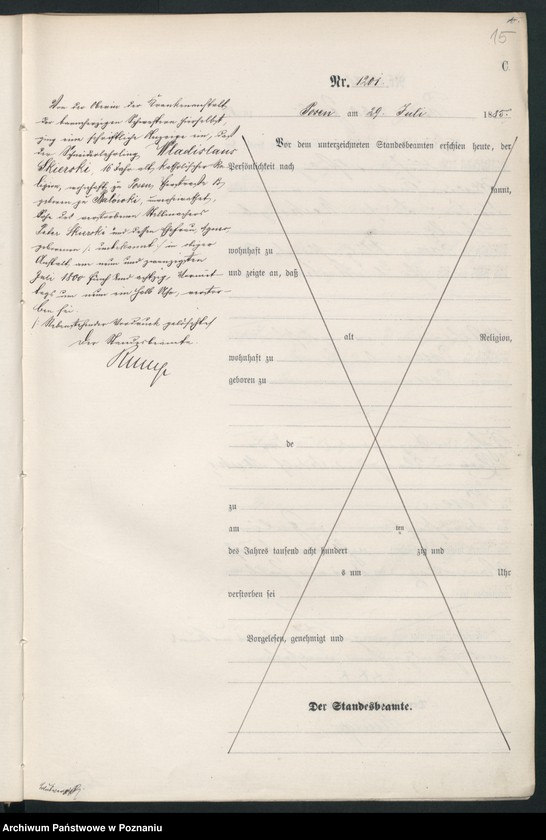 15
C
Nr. 1201.
Posen am 29. Juli 1885.
Von der Oberin der Krankenanstalt
der barmherzigen Schwestern hierselbst
ging eine schriftliche Anzeige ein, daß
der Schneiderlehrling Wladislaus
Skierski, 16 Jahr alt, katholischer Re-
ligion, wohnhaft zu Posen,
geboren zu unverheirathet,
Sohn des verstorbenen Stellmachers
Peter Skierski und dessen Ehefrau Agnes,
geborenen (: unbekannt :) in obiger
Anstalt am neun und zwanzigsten
Juli 1800 fünf und achtzig, Vormit-
tags um neun ein halb Uhr, verstor-
ben sei.
(: Nebenstehender Vordruck gelöscht :)
Der Standesbeamte.
Vor dem unterzeichneten Standesbeamten erschien heute, der
Persönlichkeit nach
kannt,
wohnhaft zu
und zeigte an, daß
alt Religion,
wohnhaft zu
geboren zu
de
zu
am ten
des Jahres tausend acht hundert zig und
s um Uhr
verstorben sei
Vorgelesen, genehmigt und
Der Standesbeamte.
Archiwum Państwowe w Poznaniu